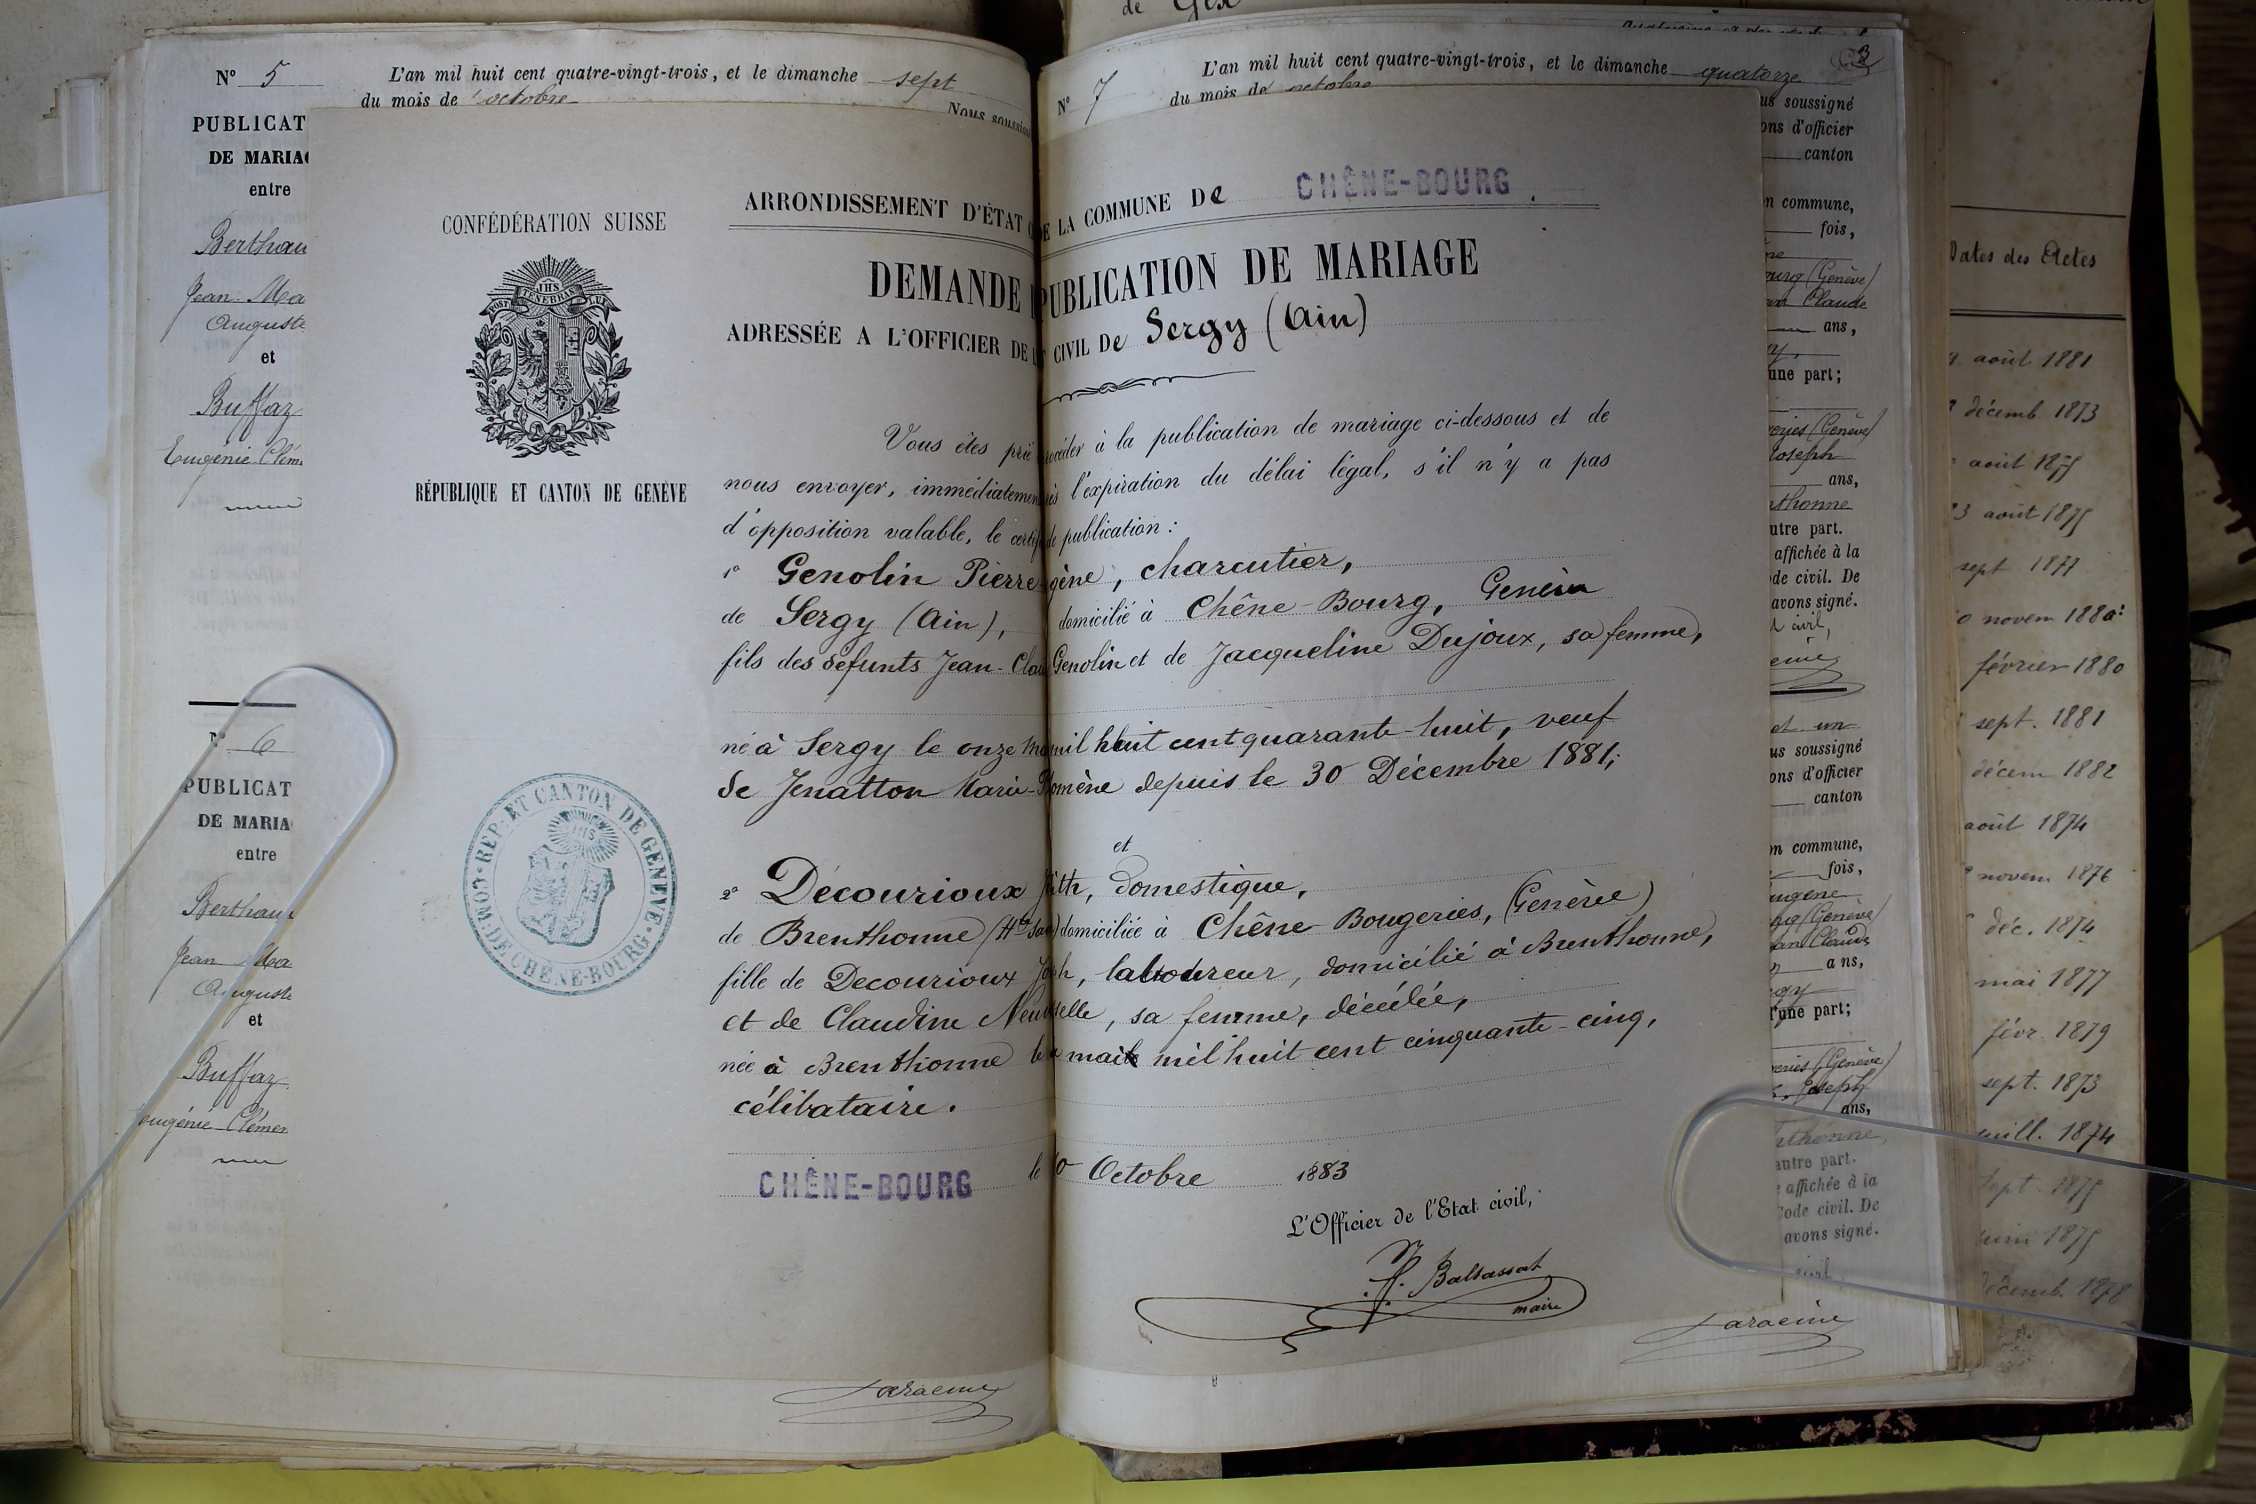 de Gex
N° 5
L'an mil huit cent quatre-vingt-trois, et le dimanche sept
du mois de octobre
Nous soussi
PUBLICAT
DE MARIA
entre
Berthau
Jean Ma
Auguste
et
Buffaz
Eugénie Clém
N° 6
PUBLICAT
DE MARIA
entre
Berthau
Jean Ma
Auguste
et
Buffaz
Eugénie Clémen
CONFÉDÉRATION SUISSE
POST TENEBRAS LUX
IHS
RÉPUBLIQUE ET CANTON DE GENÈVE
ARRONDISSEMENT D'ÉTAT C DE LA COMMUNE De CHÊNE-BOURG.
DEMANDE PUBLICATION DE MARIAGE
ADRESSÉE A L'OFFICIER DE L' CIVIL De Sergy (Ain)
Vous êtes prié océder à la publication de mariage ci-dessous et de
nous envoyer, immédiatemen ès l'expiration du délai légal, s'il n'y a pas
d'opposition valable, le certif de publication :
1° Genolin Pierre gène, charcutier,
de Sergy (Ain), domicilié à Chêne-Bourg, Genève
fils des défunts Jean-Clau Genolin et de Jacqueline Dujoux, sa femme,
né à Sergy le onze mil huit cent quarante-huit, veuf
de Jenatton Marie- omène depuis le 30 Décembre 1881;
et
2° Décourioux ith, domestique,
de Brenthonne (Hte Sav) domiciliée à Chêne-Bougeries, (Genève)
fille de Decourioux Joph, laboureur, domicilié à Brenthonne,
et de Claudine Neu selle, sa femme, décédée,
née à Brenthonne le mai mil huit cent cinquante-cinq,
célibataire.
CHÊNE-BOURG le 10 Octobre 1883
L'Officier de l'Etat civil,
Balsassat
maire
REP: ET CANTON DE GENEVE
COM: DE CHÊNE-BOURG
IHS
Laracine
N° 7
L'an mil huit cent quatre-vingt-trois, et le dimanche quatorze
du mois de octobre
3
us soussigné
ons d'officier
canton
n commune,
fois,
ourg (Genève)
an Claude
ans,
gy,
une part;
eries (Genève)
Joseph
ans,
nthonne
utre part.
affichée à la
de civil. De
avons signé.
civil,
et un
us soussigné
ons d'officier
canton
n commune,
fois,
ugène
rg (Genève)
an Claude
ans,
rgy
l'une part;
eries (Genève)
Joseph
ans,
nthonne,
autre part.
affichée à la
Code civil. De
avons signé.
civil
Laracine
Dates des Actes
août 1881
décemb 1873
août 1875
3 août 1875
sept 1877
novem 1880
février 1880
sept. 1881
décem 1882
août 1874
novem 1876
déc. 1874
mai 1877
févr. 1879
sept. 1873
juill. 1874
sept. 1875
juin 1875
décemb. 1878